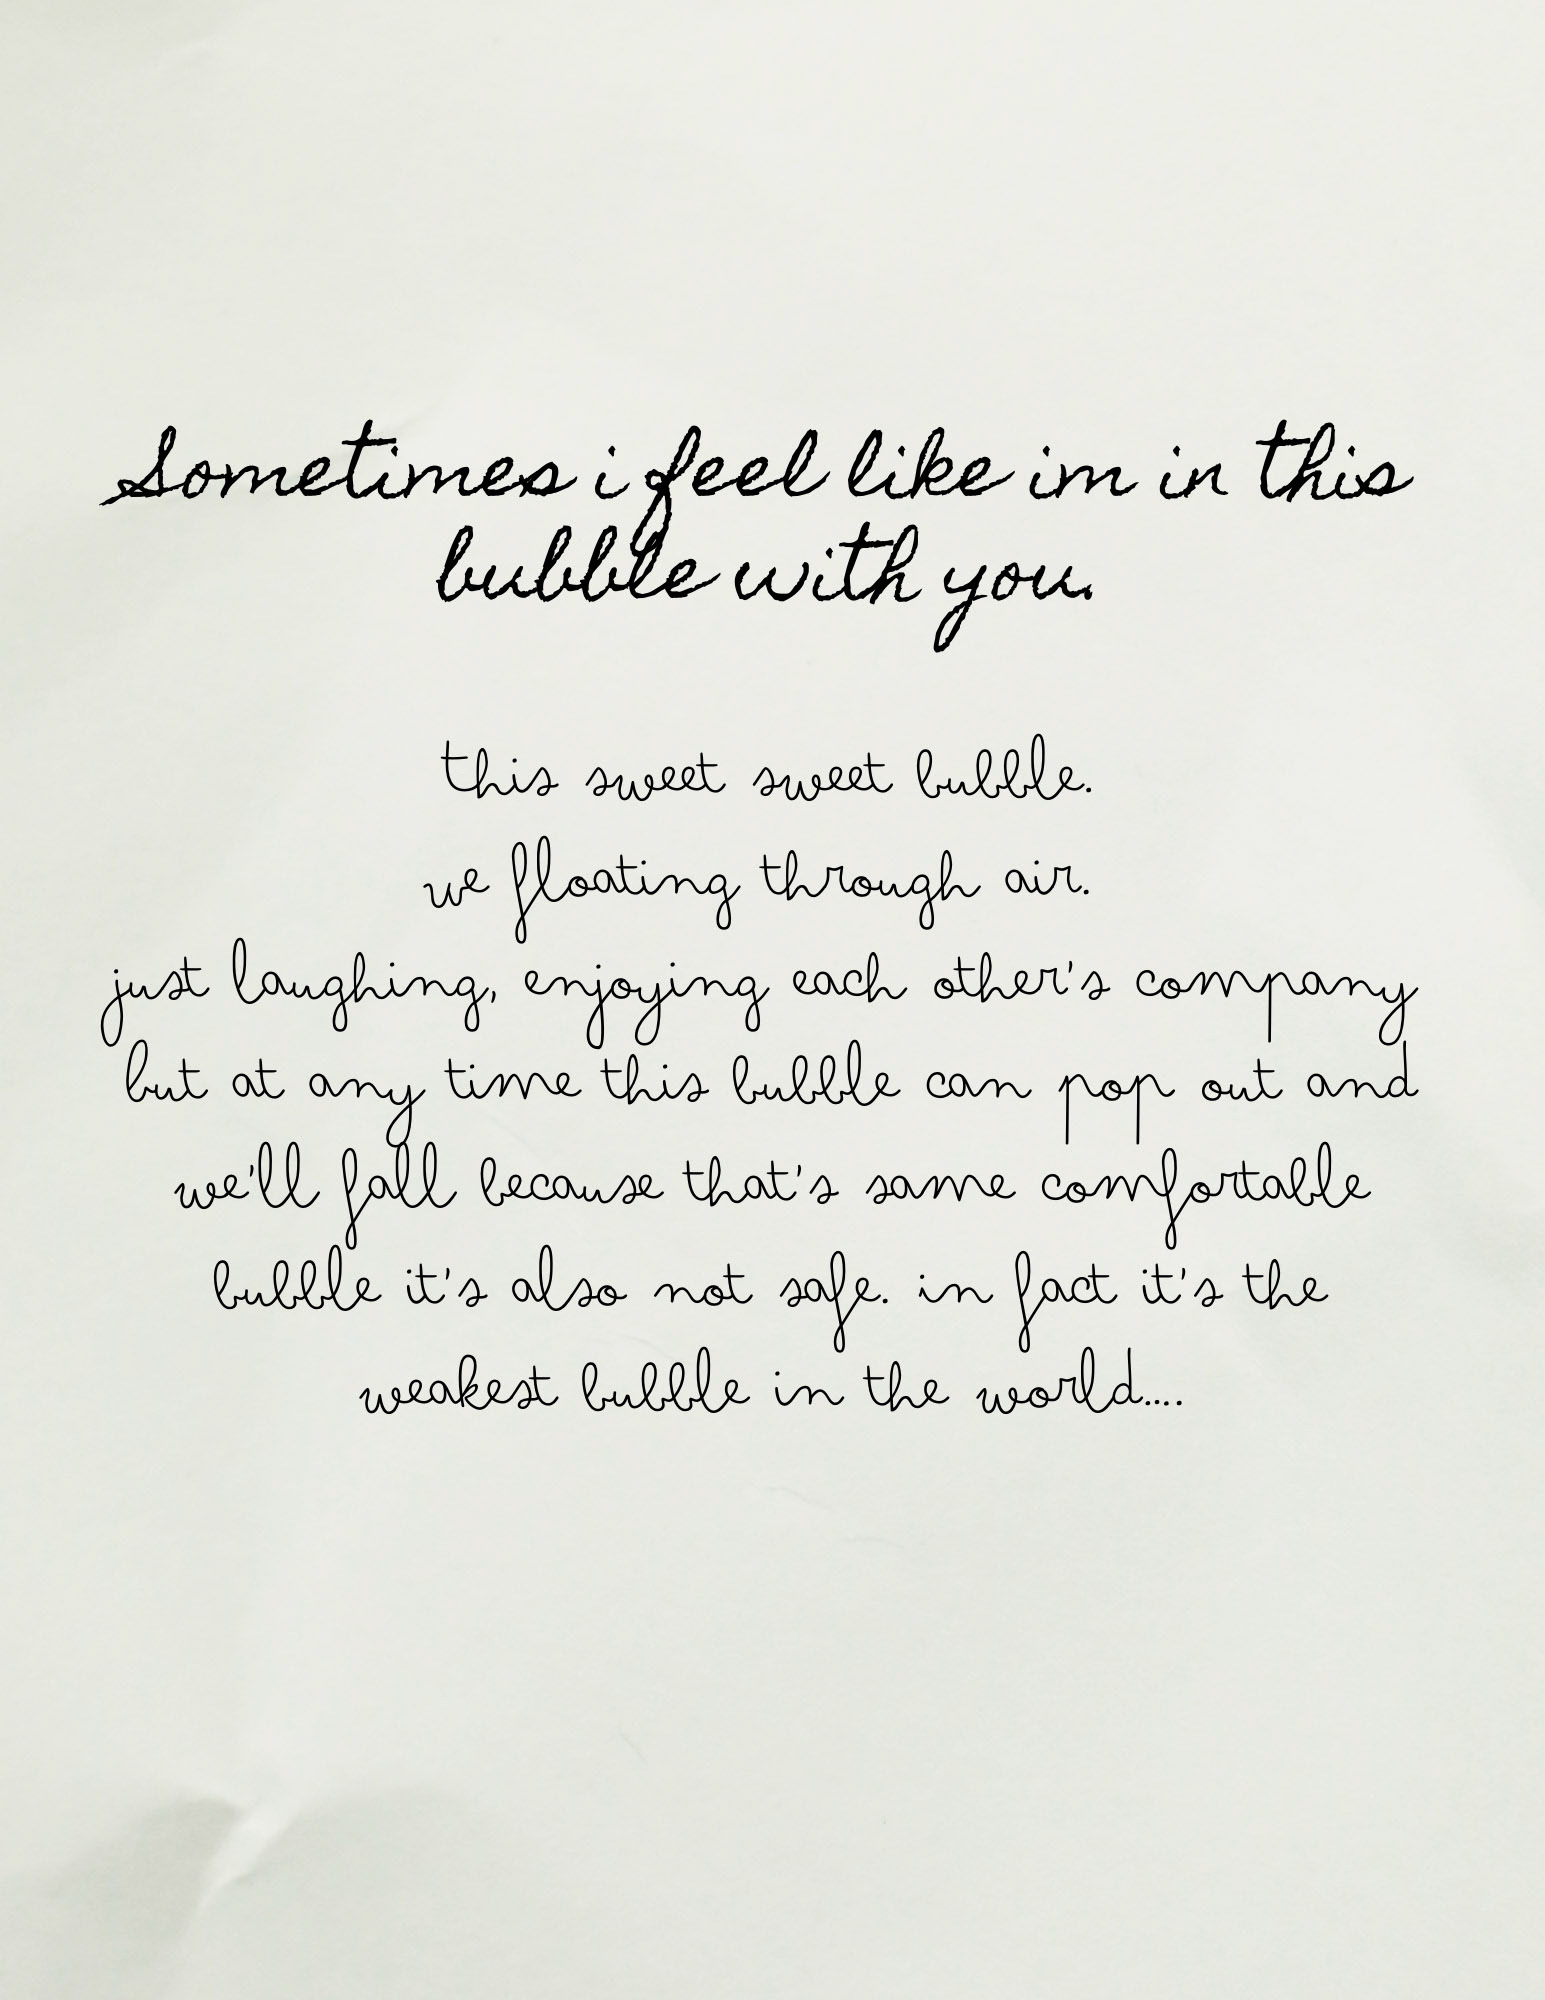 Sometimes i feel like im in this
bubble with you.
this sweet sweet bubble.
we floating through air.
just laughing, enjoying each other's company
but at any time this bubble can pop out and
we'll fall because that's same comfortable
bubble it's also not safe. in fact it's the
weakest bubble in the world....